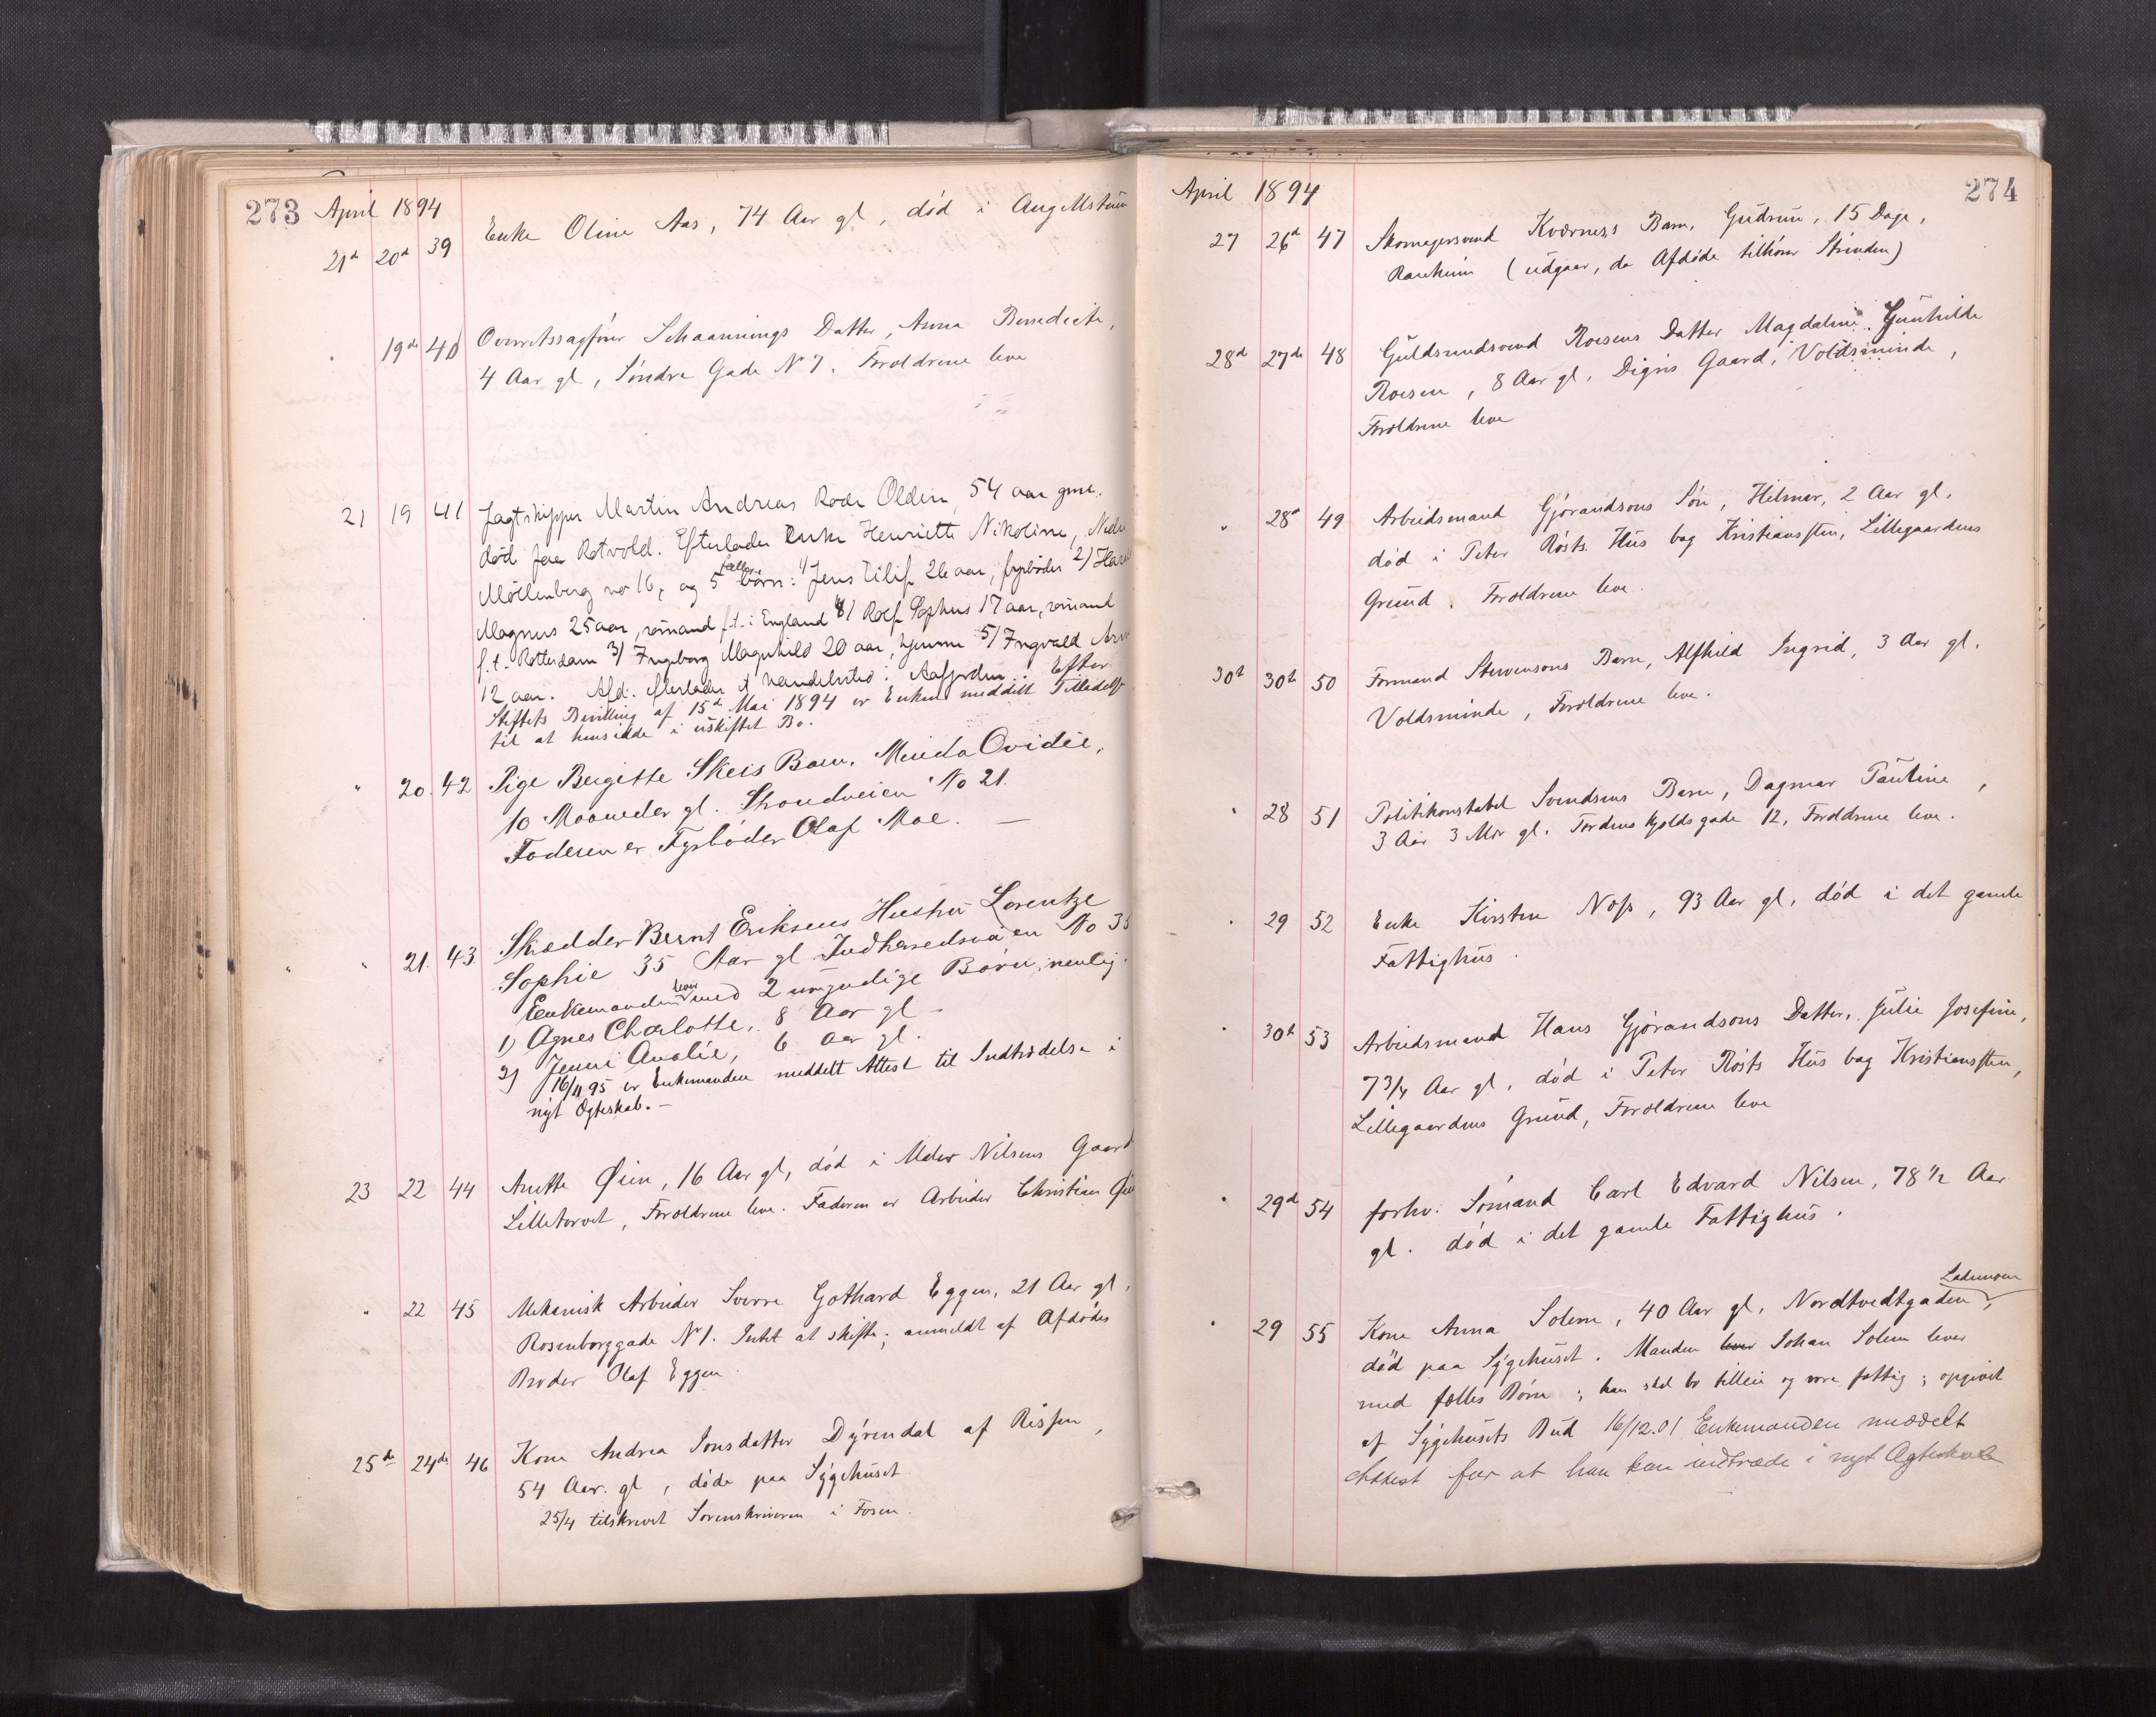 273 April 1894
21d 20d 39 Enke Oline Aas, 74 Aar gl, död i Aug Mstuen
" 19de 40 Overretssagförer Schaannings Datter, Anna Benedicte,
4 Aar gl, Söndre Gade No 7. Forældrene leve
21 19 41 Jagtskipper Martin Andreas Rode Olden, 54 aar gml.
död paa Rotvold. Efterlader Enke Henriette Nikoline, Nedre
Möllenberg no 16, og 5 fælles börn: 1) Jens Eilif 26 aar, fyrböder 2) Harald
Magnus 25 aar, sömand f.t. i England 4) Rolf Sophus 17 aar, sömand
f.t. Rotterdam 3) Ingeborg Magnhild 20 aar, hjemme 5) Ingvald Arne
12 aar. Afd. efterlader et handelssted i Aafjorden. Efter
Stiftets Bevilling af 15de Mai 1894 er Enken meddelt Tilladelse
til at hensidde i uskiftet Bo.
" 20. 42 Pige Bergitte Skeis Barn, Minda Ovidie,
10 Maaneder gl. Strandveien No 21.
Faderen er Fyrböder Olaf Moe. —
" " 21. 43. Skrædder Bernt Eriksens Hustru Lorentze
Sophie 35 Aar gl Indherredsveien No 35
Enkemanden lever med 2 umyndige Börn, nemlig.
1) Agnes Charlotte, 8 Aar gl —
2) Jenni Amalie, 6 Aar gl.
16/11 95 er Enkemanden meddelt Attest til Indtrædelse i
nyt Ægteskab. —
23 22 44 Anette Øien, 16 Aar gl, död i Nilsens Gaard
Lilletorvet, Forældrene leve. Faderen er Arbeider Christian Øien
" 22 45 Mekanisk Arbeider Sverre Gothard Eggen, 21 Aar gl,
Rosenborggade No 1. Intet at skifte; anmeldt af Afdödes
Broder Olaf Eggen
25de 24de 46 Kone Andrea Jonsdatter Dyrendal af Rissen,
54 Aar gl, döde paa Sygehuset
25/4 tilskrevet Sorenskriveren i Fosen.
April 1894 274
27 26d 47 Skomagersvend Kværness Barn, Gudrun, 15 Dage,
Ranheim (udgaar, da Afdöde tilhörer Strinden)
28d 27de 48 Guldsmedsvend Roesens Datter Magdaline Gunhilde
Roesen, 8 Aar gl. Digris Gaard, Voldsminde,
Forældrene leve
" 28d 49 Arbeidsmand Gjörandsons Sön, Hilmar, 2 Aar gl.
död i Peter Rösts Hus bag Kristiansten, Lillegaardens
Grund. Forældrene leve.
30te 30te 50 Formand Stevensons Barn, Alfhild Ingrid, 3 Aar gl.
Voldsminde, Forældrene leve.
" 28 51 Politikonstabel Svendsens Barn, Dagmar Pauline,
3 Aar 3 Mdr gl. Tordenskjoldsgade 12, Forældrene leve.
" 29 52 Enke Kirsten Noss, 93 Aar gl, död i det gamle
Fattighus.
" 30te 53 Arbeidsmand Hans Gjörandsons Datter, Julie Josefine,
7 3/4 Aar gl, död i Peter Rösts Hus bag Kristiansten,
Lillegaardens Grund, Forældrene leve
" 29d 54 forhv. Sömand Carl Edvard Nilsen, 78 1/2 Aar
gl. död i det gamle Fattighus.
" 29 55 Kone Anna Solem, 40 Aar gl, Nordtvedtgaden, Lademoen
död paa Sygehuset. Manden lever Johan Solem lever
med fælles Börn; han skal bo tilleie og være fattig; opgivet
af Sygehusets Bud 16/12.01 Enkemanden meddelt
Attest for at han kan indtræde i nyt Ægteskab